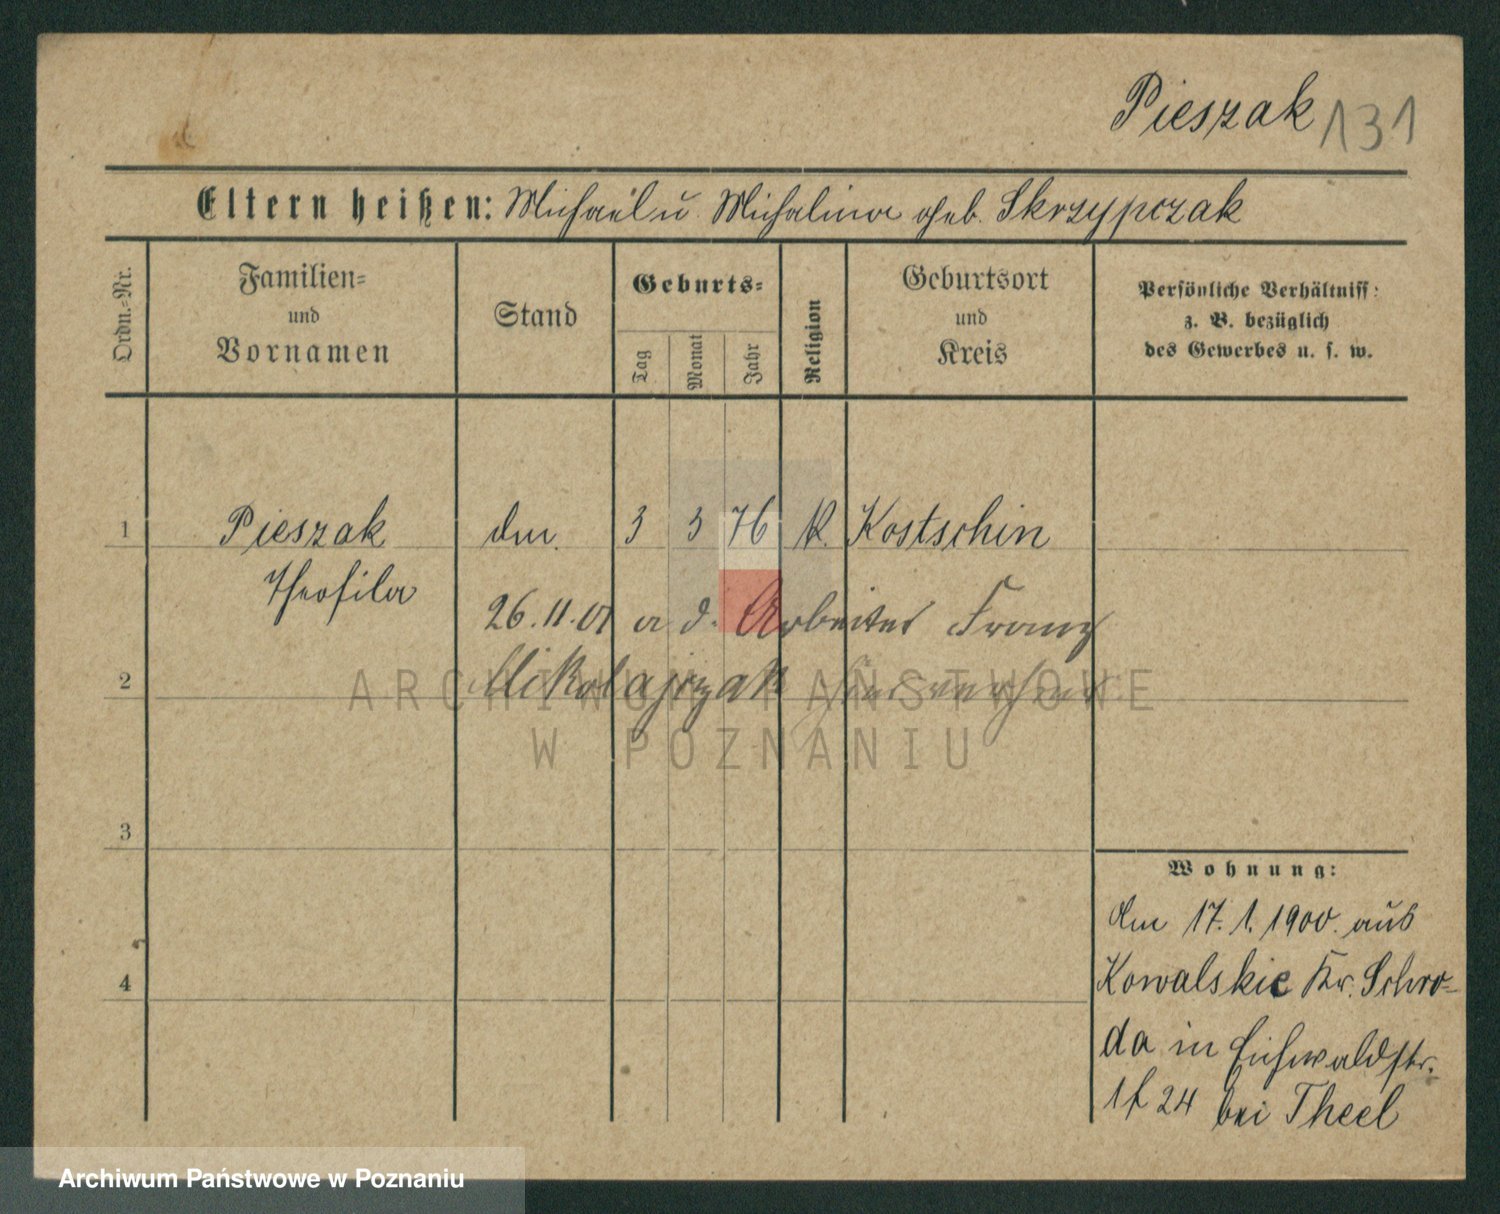 Pieszak 131
Eltern heißen: Michael u. Michalina geb. Skrzypczak
Ordn.-Nr.
Familien-
und
Vornamen
Stand
Geburts-
Tag
Monat
Jahr
Religion
Geburtsort
und
Kreis
Persönliche Verhältniss:
z. B. bezüglich
des Gewerbes u. s. w.
1 Pieszak 3 3 76 K. Kostschin
Theofila
26.11.01 a d. Arbeiter Franz
2 Mikolajczak hier verh
ARCHIWUM PAŃSTWOWE
W POZNANIU
3
4
Wohnung:
den 17. 1. 1900. aus
Kowalskie Kr. Schro-
da in Eichwaldstr.
24 bei Theel
Archiwum Państwowe w Poznaniu